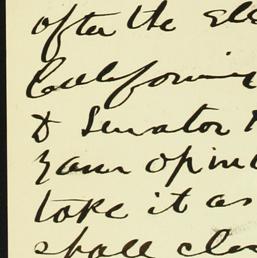 after the Ele
California
& Senator
your opini
take it as
shall clos